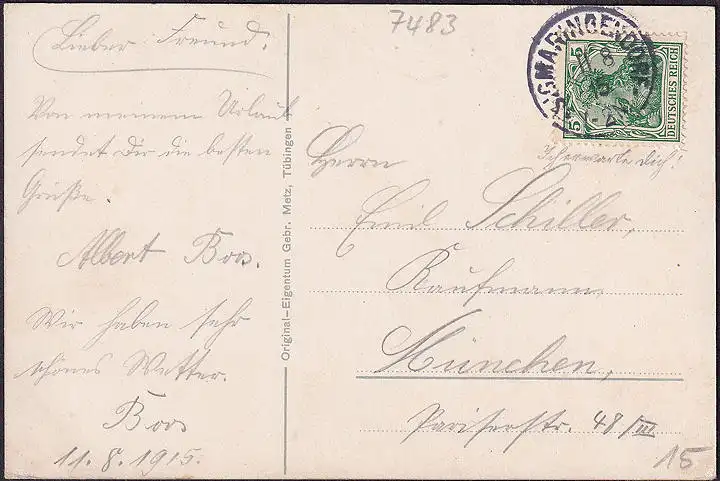 7483
Lieber Freund.
Von meinem Urlaub
sendet Dir die besten
Grüße.
Albert Boos.
Wir haben sehr
schönes Wetter.
Boos
11.8.1915.
Original-Eigentum Gebr. Metz, Tübingen
SIGMARINGENDORF
8
5 5
DEUTSCHES REICH
Ich erwarte Dich!
Herrn
Emil Schiller,
Kaufmann
München,
Pariserstr. 48/III
15